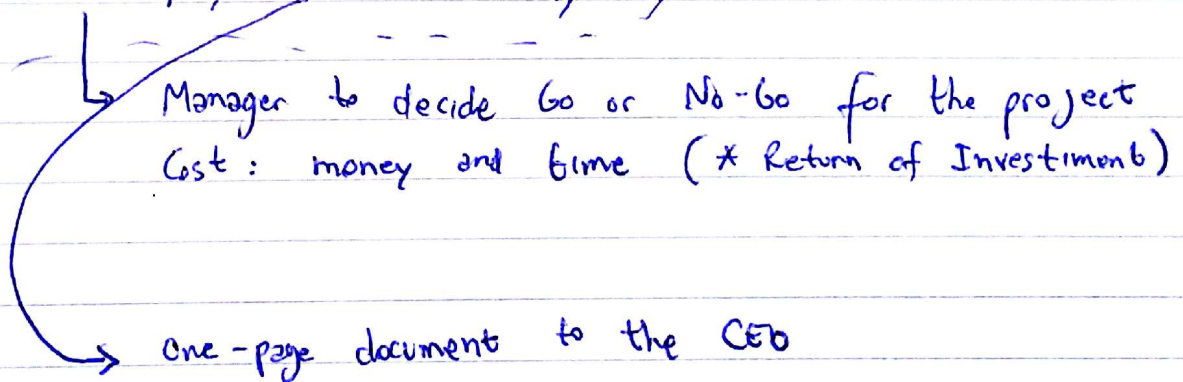 Manager to decide Go or No-Go for the project
Cost : money and time (* Return of Investiment)
One-page document to the CEO